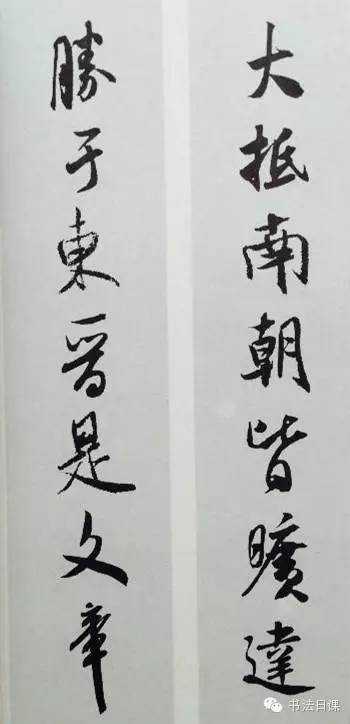 大抵南朝皆曠達
勝于東晉是文章
书法日课